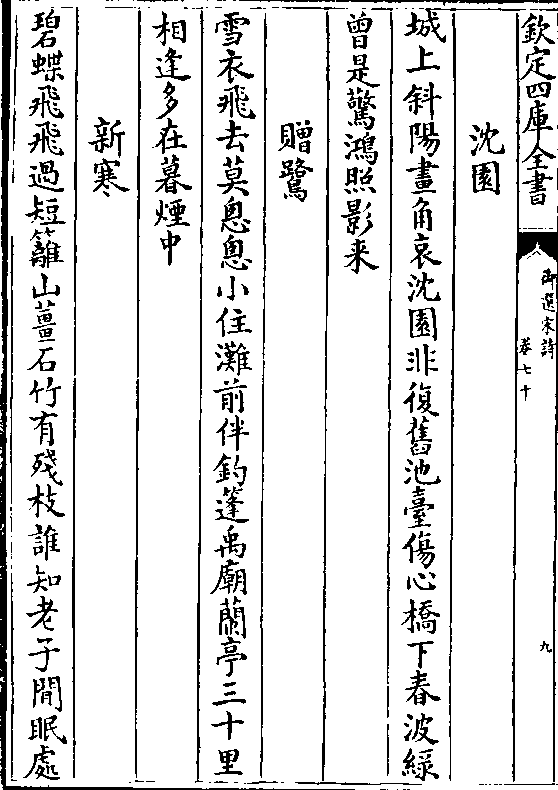 欽定四庫全書
御選宋詩
卷七十
九
沈園
城上斜陽畫角哀沈園非復舊池臺傷心橋下春波緑
曾是驚鴻照影来
贈鷺
雪衣飛去莫悤悤小住灘前伴釣篷禹廟蘭亭三十里
相逢多在暮煙中
新寒
碧蝶飛飛過短籬山薑石竹有殘枝誰知老子閒眠處